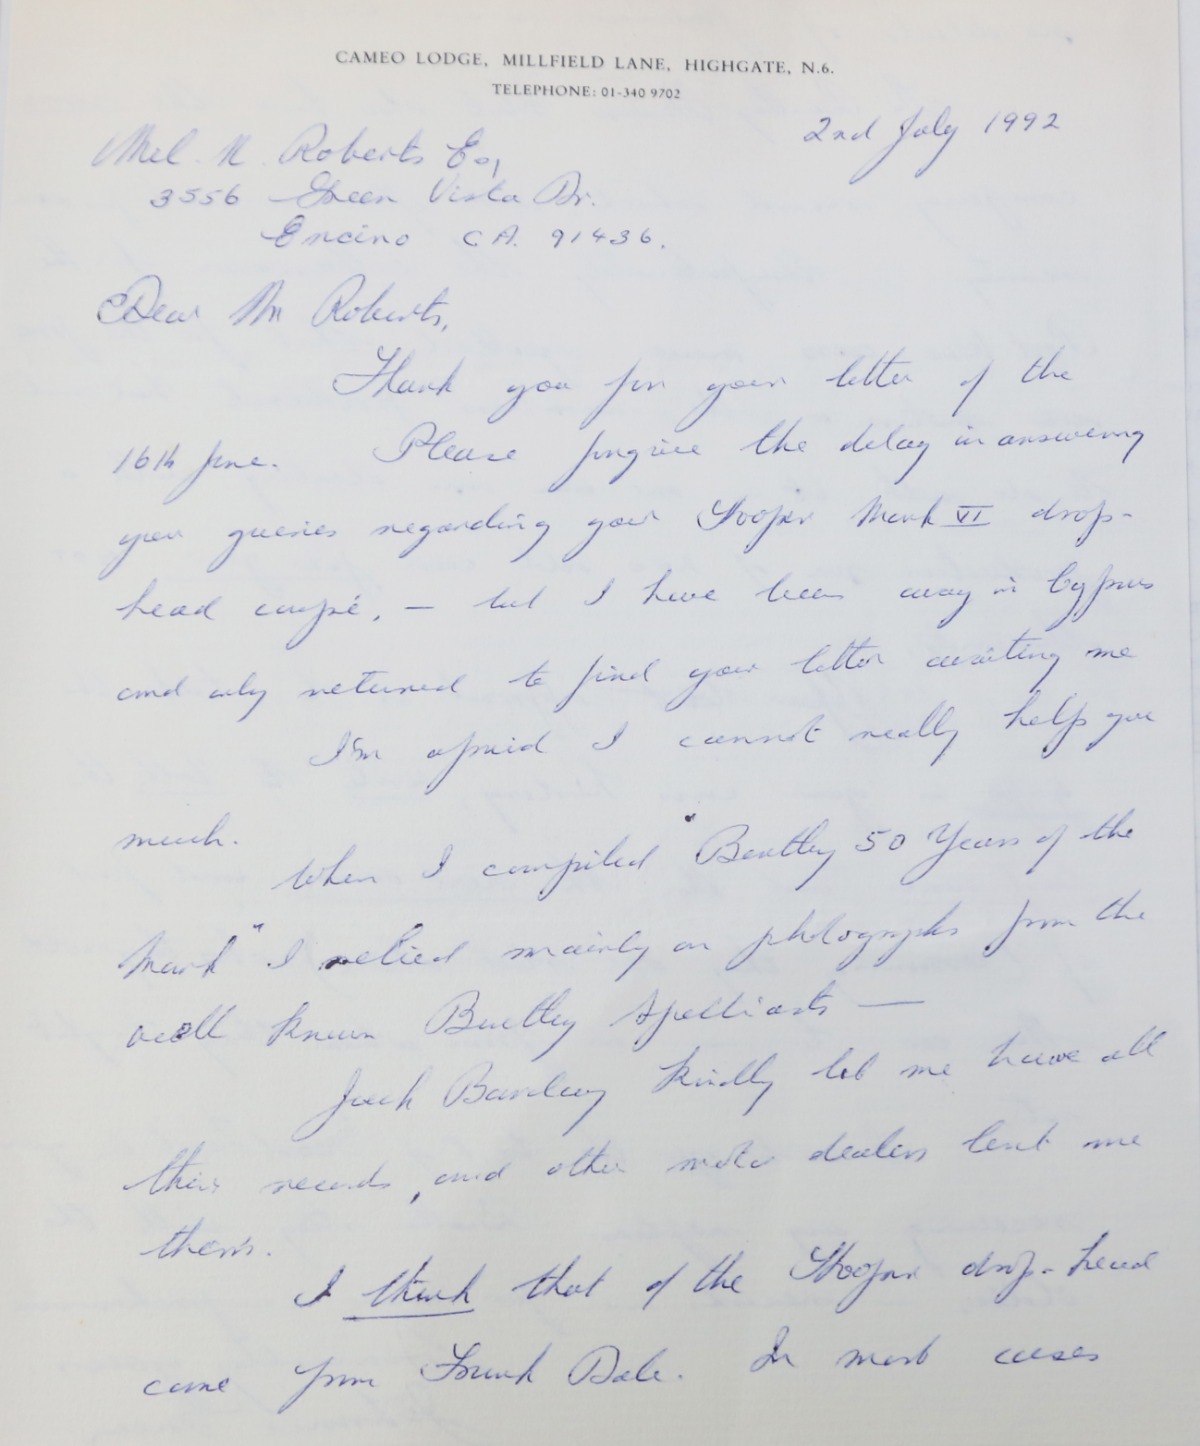 CAMEO LODGE, MILLFIELD LANE, HIGHGATE, N.6.
TELEPHONE: 01-340 9702
2nd July 1992
Mel N. Roberts Esq
3556 Green Vista Dr.
Encino CA. 91436.
Dear Mr Roberts,
Thank you for your letter of the
16th June. Please forgive the delay in answering
your queries regarding your Hooper Mark VI drop-
head coupé, — but I have been away in Cyprus
and only returned to find your letter awaiting me
I'm afraid I cannot really help you
much.
When I compiled "Bentley 50 Years of the
Mark" I relied mainly on photographs from the
well known Bentley
Jack Barclay kindly let me have all
their records, and other motor dealers lent me
theirs.
I think that of the Hooper drop-head
came from Frank Dale. In most cases